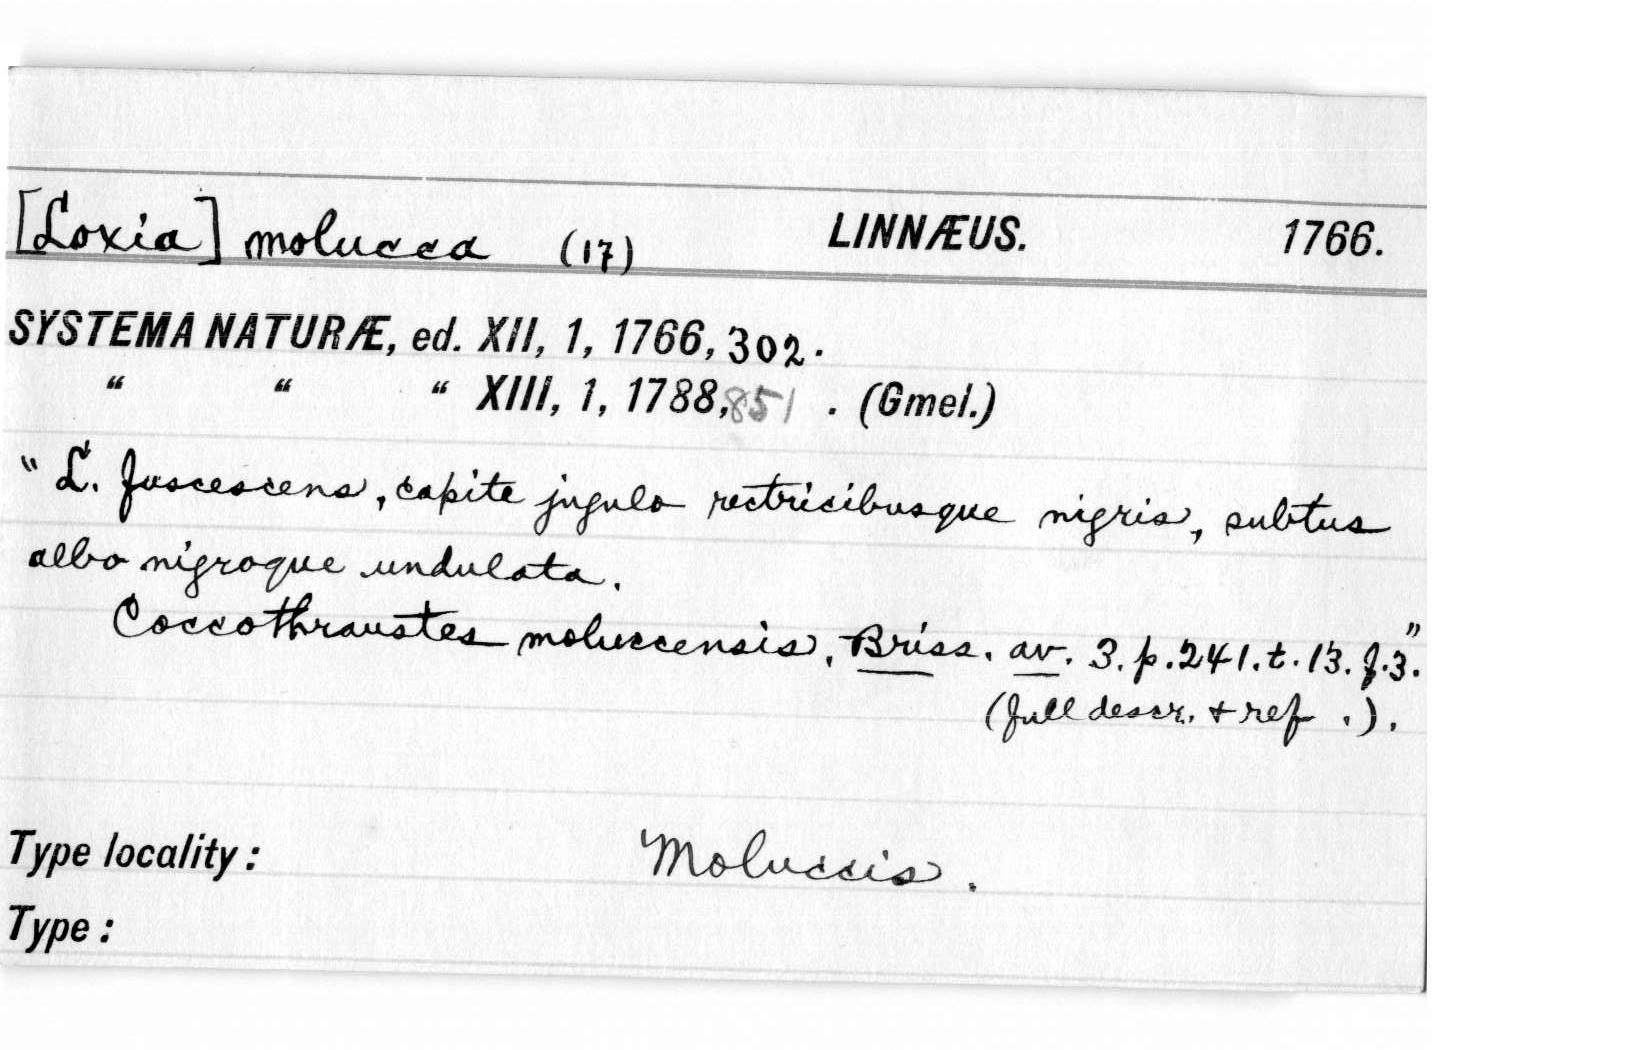 [Loxia] molucca (17) LINNÆUS. 1766.
SYSTEMA NATURÆ, ed. XII, 1, 1766, 302.
“ “ “ XIII, 1, 1788, 851 . (Gmel.)
“L. fuscescens, capite jugulo rectricibusque nigris, subtus
albo nigroque undulata.
Coccothraustes moluccensis, Briss. av. 3. p. 241. t. 13. f. 3.”
(full descr. + ref .).
Type locality: Moluccis.
Type: